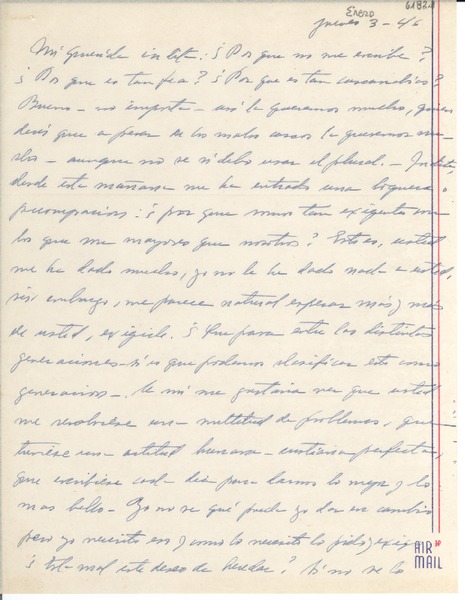 Enero 6182
jueves 3 - 46
Mi querida indita: ¿Por qué no me escribe?
¿Por que es tan fea? ¿Por que es tan cascarrabias?
Bueno - no importa - así la queremos mucho, quiere
decir que a pesar de los malos la queremos mu-
cho - aunque no se si debo usar el plural. - Indita,
desde esta mañana me ha entrado una ligera
preocupacion: ¿por que somos tan exigentes con
los que son mayores que nosotros? Esto es, usted
me ha dado mucho, yo no le he dado nada a usted,
sin embargo, me parece natural esperar más y más
de usted, exigirle. ¿Que pasa entre las distintas
generaciones - si es que podemos clasificar esto como
generaciones - A mí me gustaria ver que usted
me resolviese una multitud de problemas, que
tuviese una actitud humana - cristiana perfecta,
que escribiese cada dia para darnos lo mejor y lo
mas bello - Yo no se qué puedo yo dar en cambio
pero yo necesito eso y como lo necesito lo pido y exijo
¿Está mal este deseo de heredar? Si no se lo
AIR MAIL